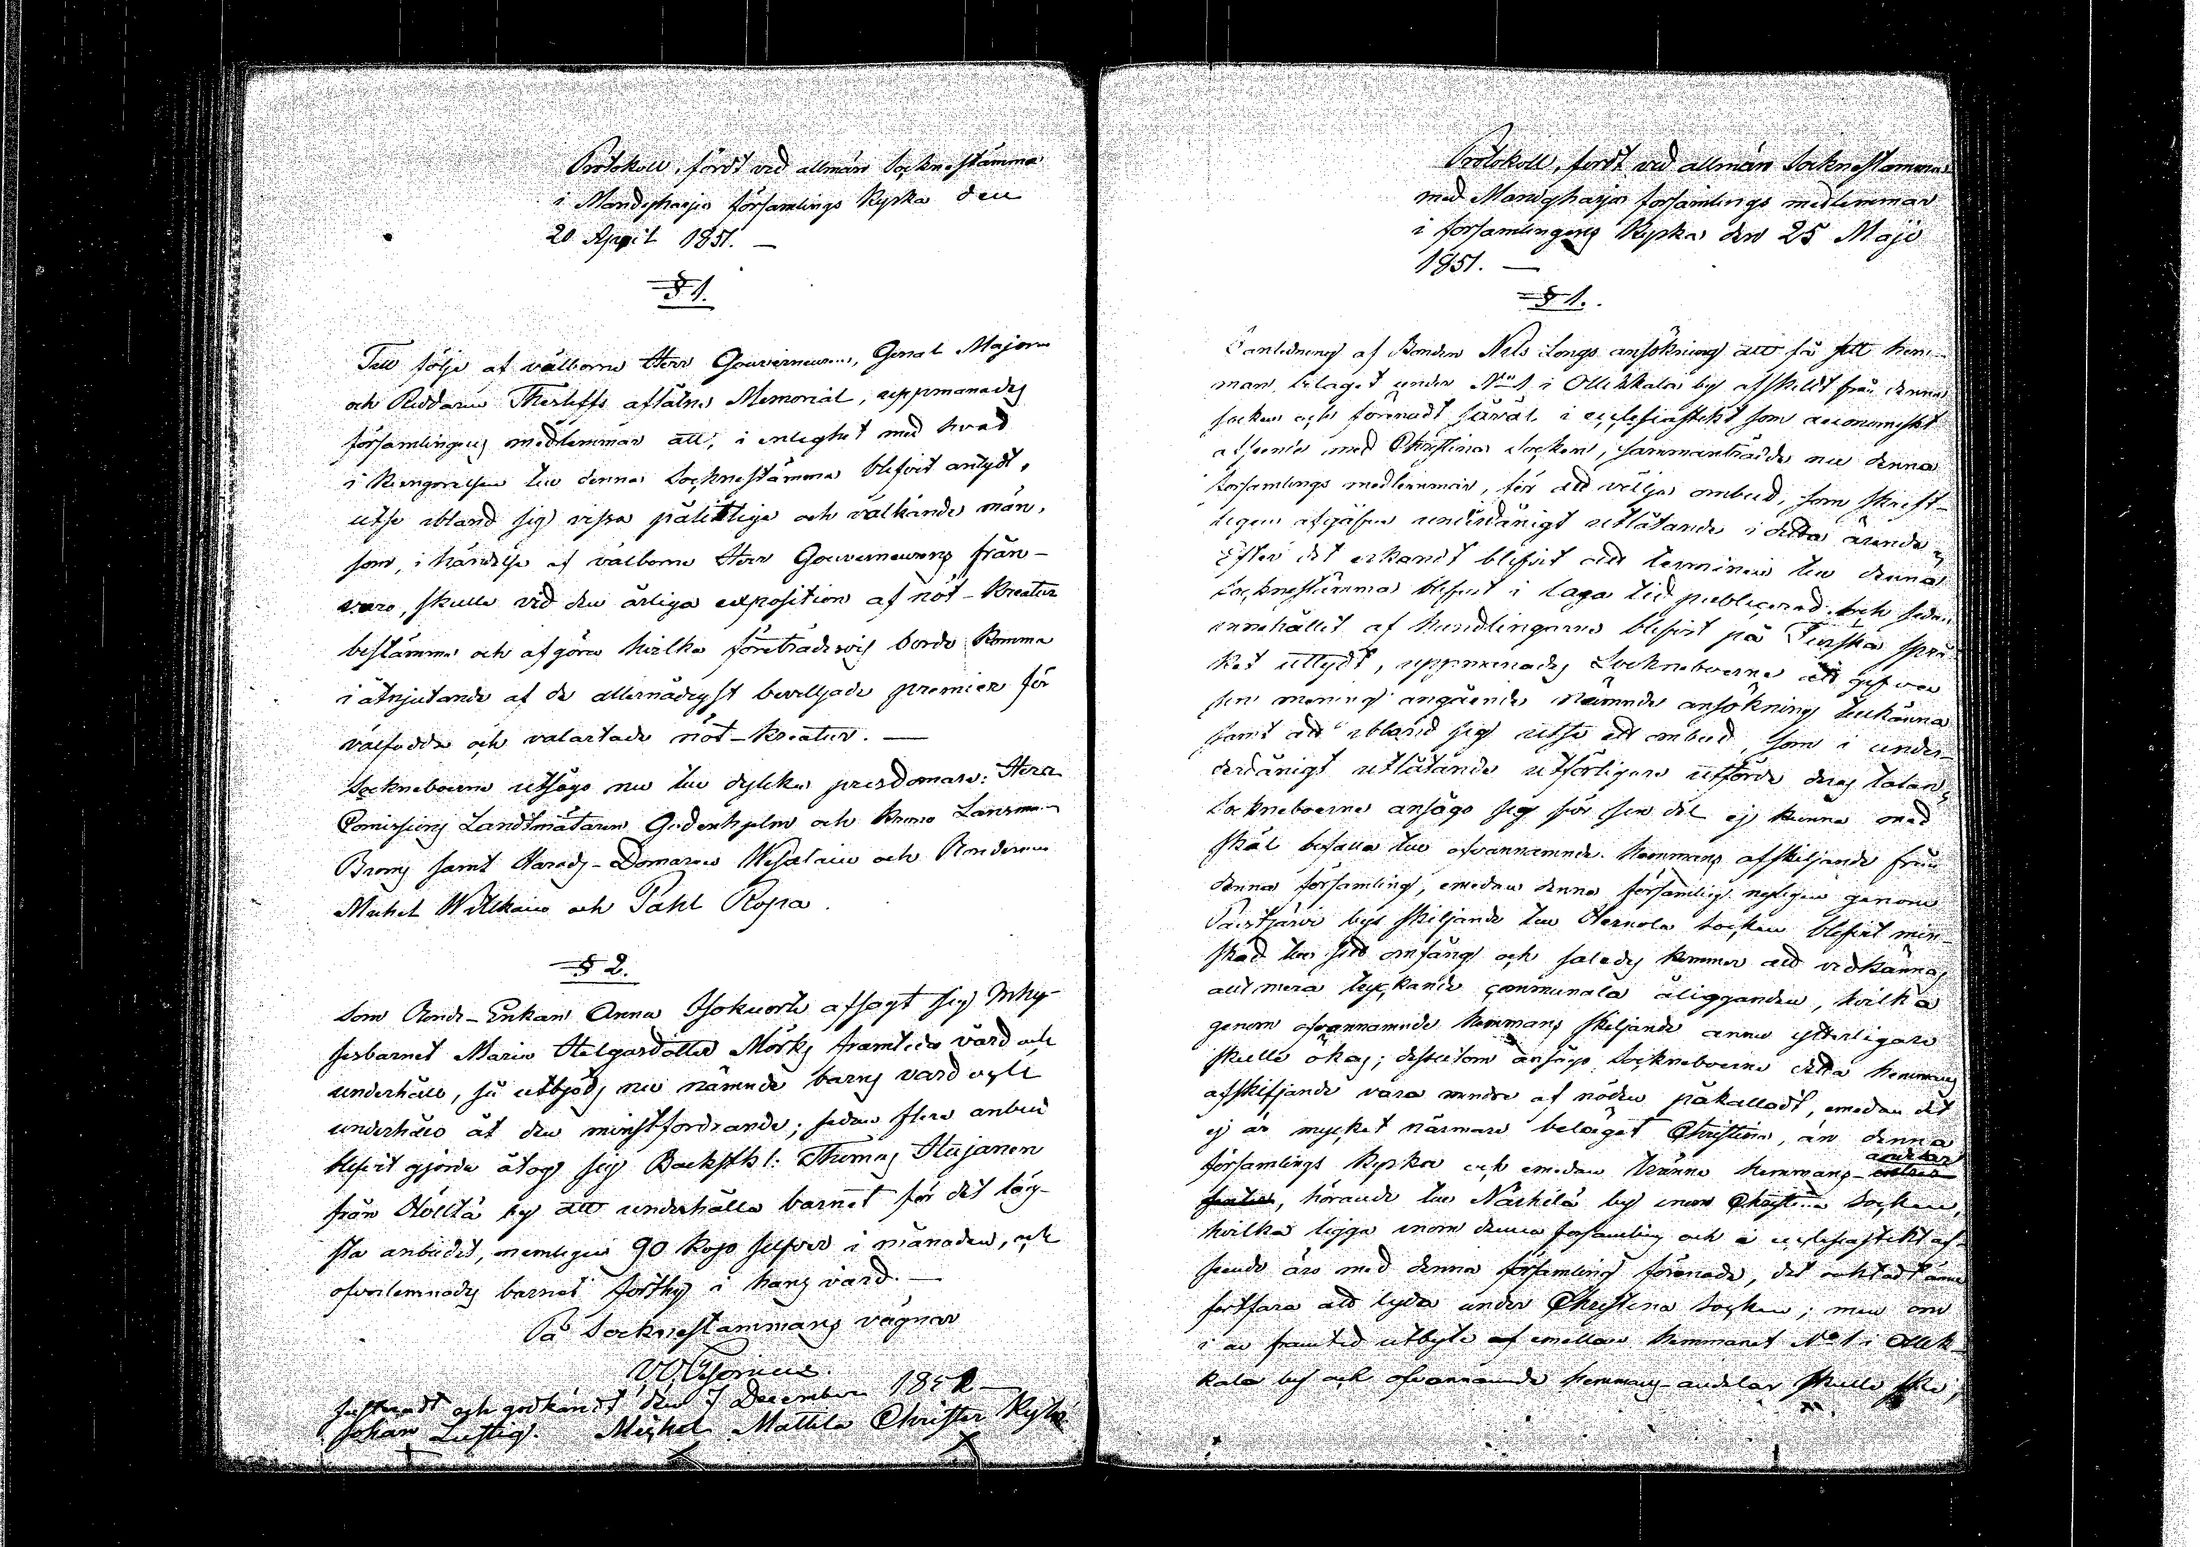 Protokoll, fördt vid allmän Socknestämma
i Mandyharju församlings Kyrka den
20 April 1851. —
§ 1.
Till följe af välborne Herr Gouverneuren, General Majoren
och Riddaren Thesleffs aflåtne Memorial, uppmanades
församlingens medlemmar att, i enlighet med hvad
i kungörelsen till denna Socknestämma blefvit antydt,
utse ibland sig vissa pålitlige och välkände män,
som, i händelse af välborne Herr Gouverneurens från-
varo, skulle vid den årliga exposition af nöt-kreatur
bestämma och afgöra hvilka företrädesvis borde komma
i åtnjutande af de allernådigst beviljade premier för
välfödda och valartade nöt-kreatur. —
Sockneboerne utsågo nu till dylika prisdomare: Herr
Comissions Landtmätaren Gadenhjelm och Krono Länsman
Broms samt Härads-Domaren Wesalain och Bönderne
Michel Willkain och Pähl Ropa.
§ 2.
Som Bonde-Enkan Anna Isokuorti afsagt sig Inhy-
sesbarnet Maria Helgasdotter Mörks framtida vård och
underhåll, så utbjöds nu nämnde barns vård och
underhåll åt den minstfordrande; sedan flera anbud
blefvit gjorda åtog sig Backsth: Thomas Hujanen
från Höltta by att underhålla barnet för det läg-
sta anbudet, nemligen 90 kop silfver i månaden, och
öfverlemnades barnet forthy i hans vård. —
På Socknestämmans vägnar
W Cygnæus.
Justeradt och godkändt den 7 December 1851 —
Johan Lustig. Michel Mattila Christer Kyttä
Protokoll, fördt vid allmän Socknestämma
med Mandyharju församlings medlemmar
i församlingens Kyrka den 25 Maji
1851. —
§ 1.
I anledning af Bonden Nils Longs ansökning att få sitt hem-
man belaget under N:o 1 i Ollikkala by afskildt från denna
socken och förenadt såväl i ecclesiastikt som æconomiskt
afseende med Christina socken, sammanträdde nu denna
församlings medlemmar, för att välja ombud, som skrift-
ligen afgåfve underdånigt utlåtande i detta ärende.
Efter det erkändt blefvit att terminen till denna
Socknestämma blefvit i laga tid publicerad och sedan
innehållet af handlingarne blefvit på Finska språ-
ket uttydt, uppmanades Sockneboerne att gifva
sin mening angående nämnde ansökning tillkänna
samt att ibland sig utse ett ombud, som i under-
derdånigt utlåtande utförligare utförde deras talan.
Sockneboerne ansågo sig för sin del ej kunna med
skäl bifalla till ofvannämnde hemmans afskiljande från
denna församling, emedan denna församling nyligen genom
Paistjärvi bys skiljande till Hernola socken blefvit min-
skad till sitt omfång och således kommer att vidkännas
allt mera tryckande communala åligganden, hvilka
genom ofvannämnde hemmans skiljande ännu ytterligare
skulle ökas; dessutom ansågo Sockneboerne detta hemmans
afskiljande vara mindre af nöden påkalladt, emedan det
ej är mycket närmare belägnat Christina, än denna
församlings kyrka och emedan tvänne hemmans-andelar
, hörande till Närhilä by inom Christina Socken,
hvilka ligga inom denna församling och i ecclesiastikt af-
seende äro med denna församling förenade, det oaktadt ännu
fortfara att lyda under Christina socken; men om
i en framtid utbyte af emellan hemmanet N:o 1 i Ollik-
kala by och ofvannämnde hemmans-andelar skulle ske,